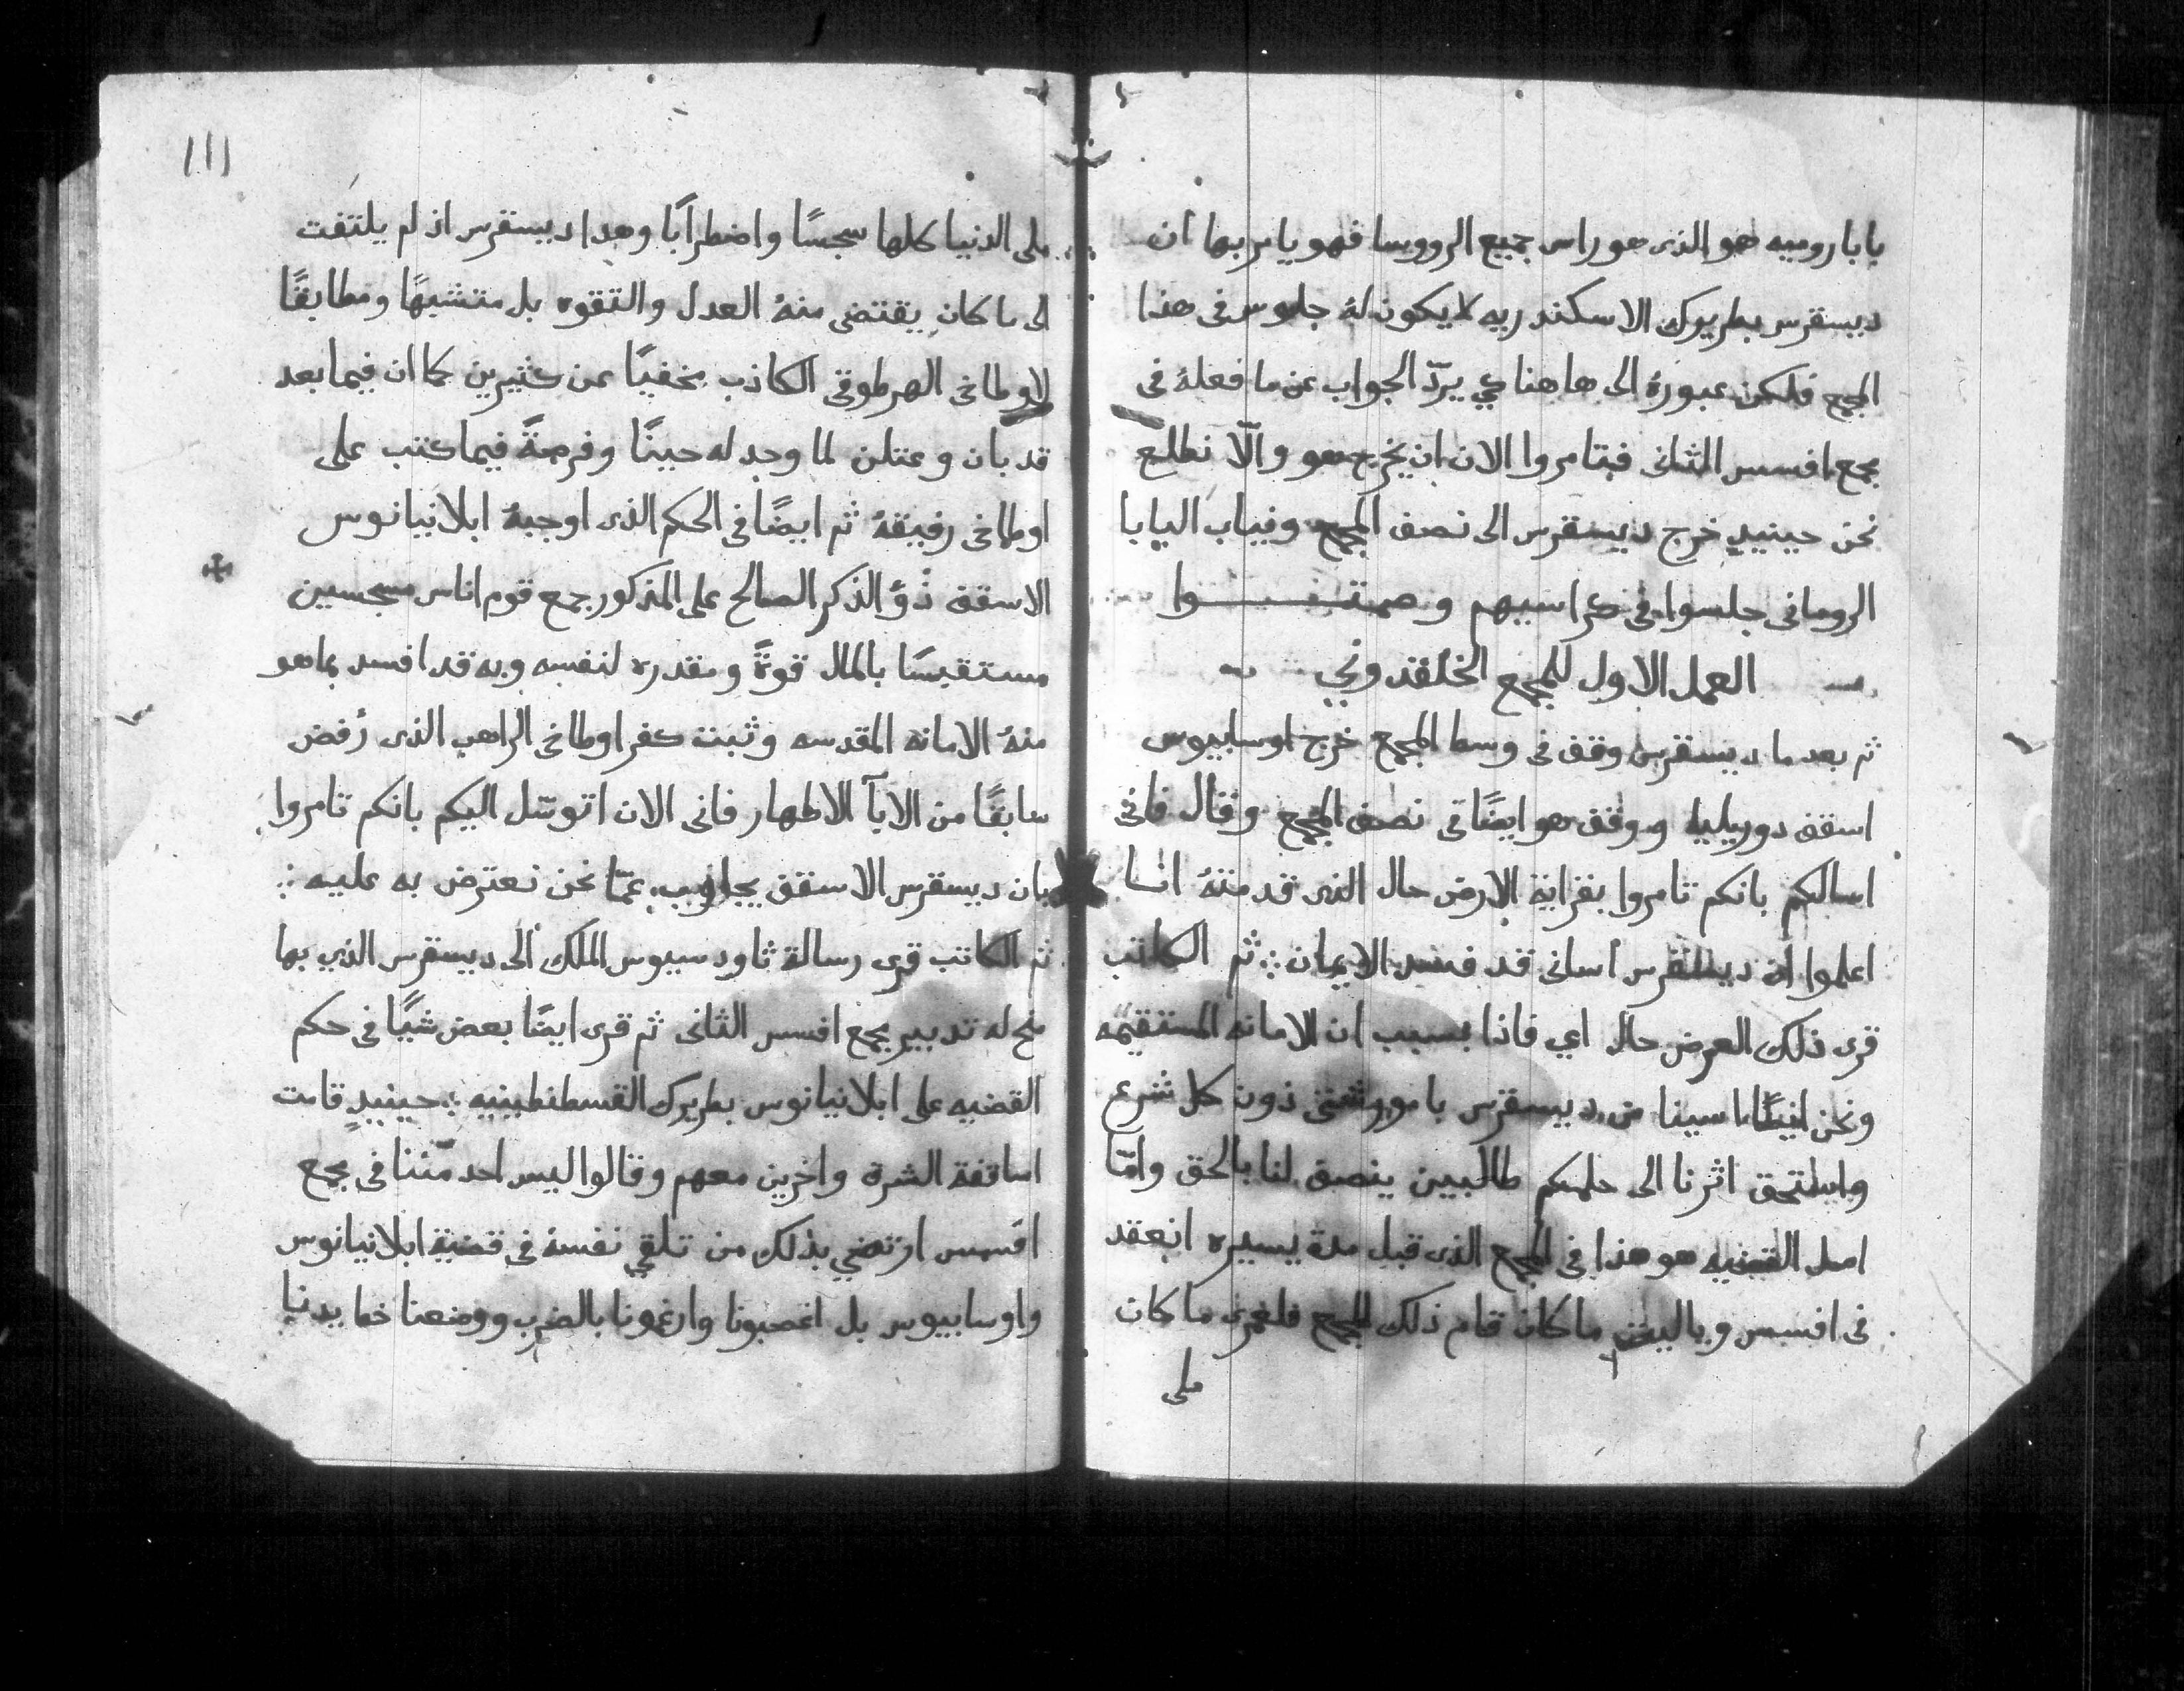 بابا روميه هو الذى هو راس جميع الروسا فهو يامر بها ان
ديسقرس بطريرك الاسكندريه لا يكون له جلوس فى هذا
المجمع فلكن عبورهُ الى هاهنا كي يردّ الجواب عن ما فعلهُ فى
مجمع افسس الثانى فتامروا الان ان يخرج هو والّا نطلع
نحن حينيدٍ خرج ديسقرس الى نصف المجمع ونياب البابا
الرومانى جلسوا فى كراسيهم وصمتـــوا
العمل الاول للمجمع الخلقندوني
ثم بعد ما ديسقرس وقف فى وسط المجمع خرج اوسابيوس
اسقف دوريليه ووقف هو ايضًا فى نصف المجمع وقال فانى
اسالكم بانكم تامروا بقراية الارض حال الذى قدمتهُ انا
اعلموا ان ديسقرس اسانى قد فسد الايمان ∴ ثم الكاتب
قرى ذلك العرض حال اي فاذا بسبب ان الامانه المستقيمه
ونحن ايضًا اسينا من ديسقرس بامور شتى دون كل شرع
واستحق اثرنا الى حلمكم طالبين ينصف لنا بالحق وامّا
اصل القضيه هو هذا فى المجمع الذى قبل مدة يسيره انعقد
فى افسس وياليتن ما كان قام ذلك المجمع فلعمرى ما كان
ملى
١١١
ملى الدنيا كلها سجسًا واضطرابًا وهدا ديسقرس اذ لم يلتفت
الى ما كان يقتضى منهُ العدل والتقوه بل متشبهًا ومطابقًا
لاوطاخى الهرطوقى الكاذب مخفيًا عن كثيرين كما ان فيما بعد
قد بان وعتلن لما وجد له حينًا وفرصةً فيما كتب على
اوطاخى رفيقهُ ثم ايضًا فى الحكم الذى اوجبهُ ابلانيانوس
الاسقف ذُو الذكر الصالح على المذكور جمع قوم اناس مسجسين
مستقبسًا بالمال قوةً ومقدره لنفسه وبه قد افسد بما هو
منهُ الامانه المقدسه وثبت كفر اوطاخى الراهب الذى رُفض
سابقًا من الابآ الاطهار فانى الان اتوسّل اليكم بانكم تامروا
بان ديسقرس الاسقف يجاوب عمّا نحن نعترض به عليه ∴
ثم الكاتب قرى رسالة ثاودسيوس الملك الى ديسقرس الذي بها
منح له تدبير مجمع افسس الثانى ثم قرى ايضًا بعض شيًا فى حكم
القضيه على ابلانيانوس بطريرك القسطنطينيه ∴ حينيدٍ قامت
اساقفة الشرق واخرين معهم وقالوا ليس احد منّنا فى مجمع
افسس ارتضي بذلك من تلقي نفسهُ فى قضية ابلانيانوس
واوسابيوس بل اغصبونا وارغمونا بالضرب ووضعنا خط يدنا